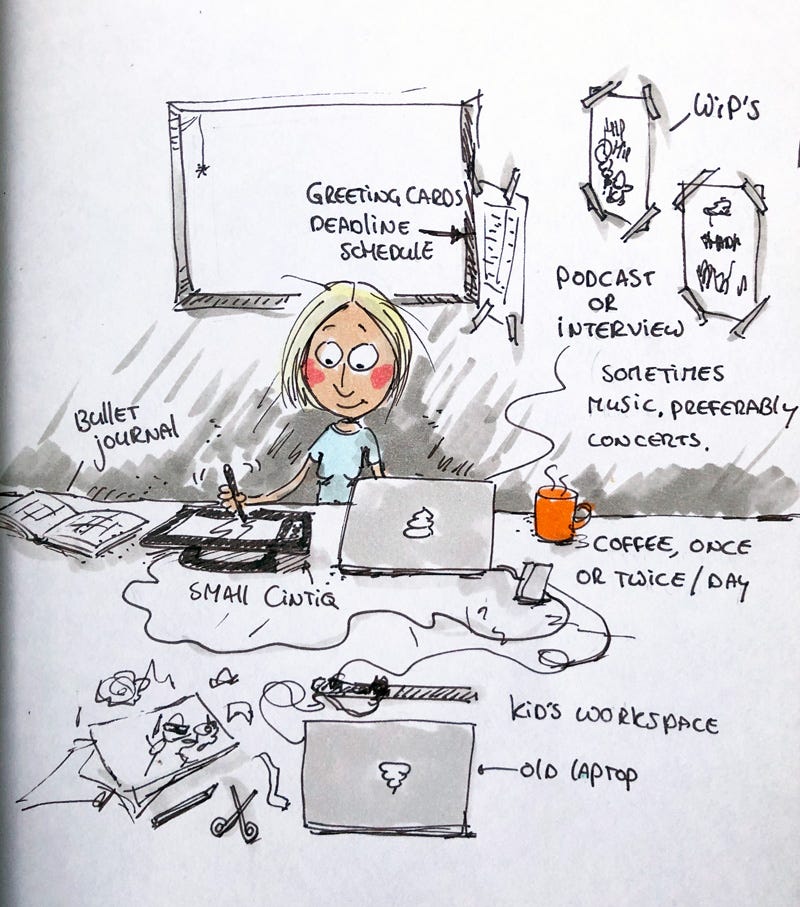 WiP'S
GREETING CARDS
DEADLINE
SCHEDULE
PODCAST
OR
INTERVIEW
SOMETIMES
MUSIC, PREFERABLY
CONCERTS.
BULLET
JOURNAL
COFFEE, ONCE
OR TWICE/DAY
SMALL CINTIQ
KID'S WORKSPACE
OLD LAPTOP